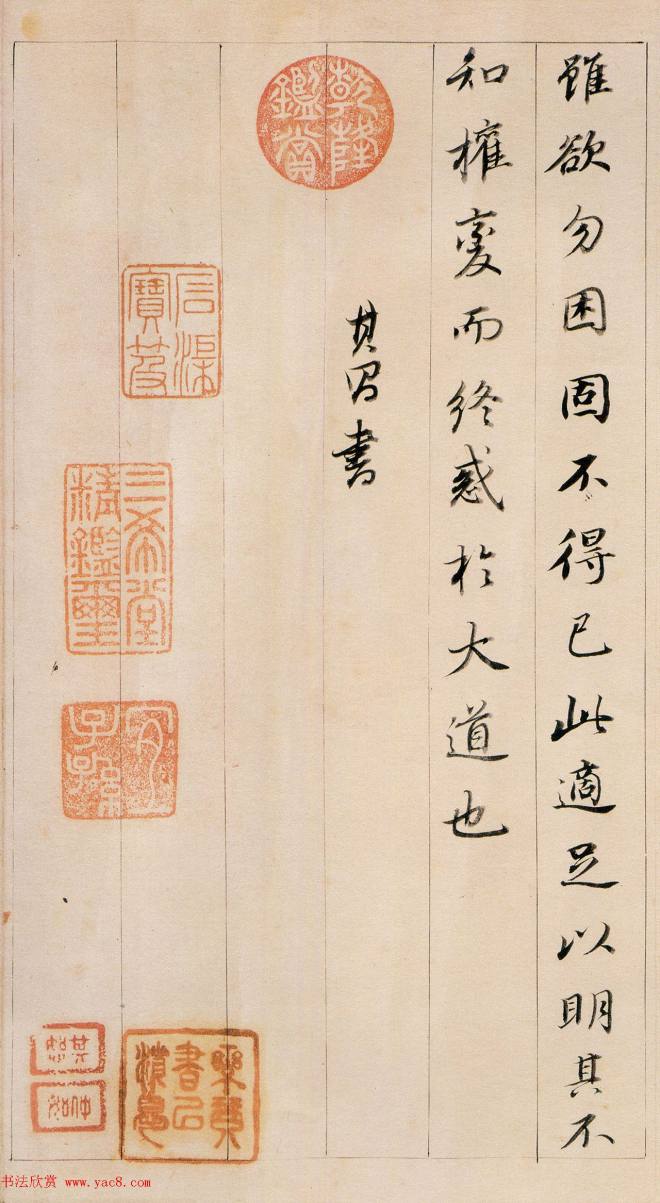 雖欲勿困固不得已此適足以明其不
知權變而終惑於大道也
其昌書
乾隆鑑賞
三希堂精鑑璽
宜子孫
书法欣赏 www.yac8.com